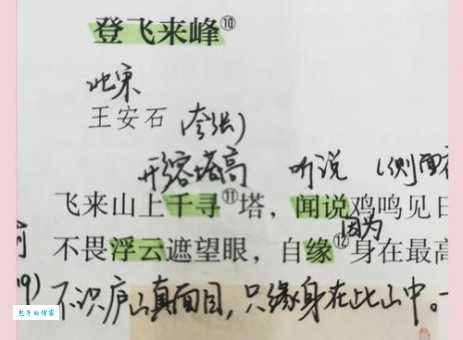 登飞来峰⑩
北宋
王安石 (夸张)
形容塔高 听说 (侧面
飞来山上千寻⑪塔，闻说鸡鸣见日
因为
不畏浮云遮望眼，自缘⑫身在最高
不识庐山真面目，只缘身在此山中。